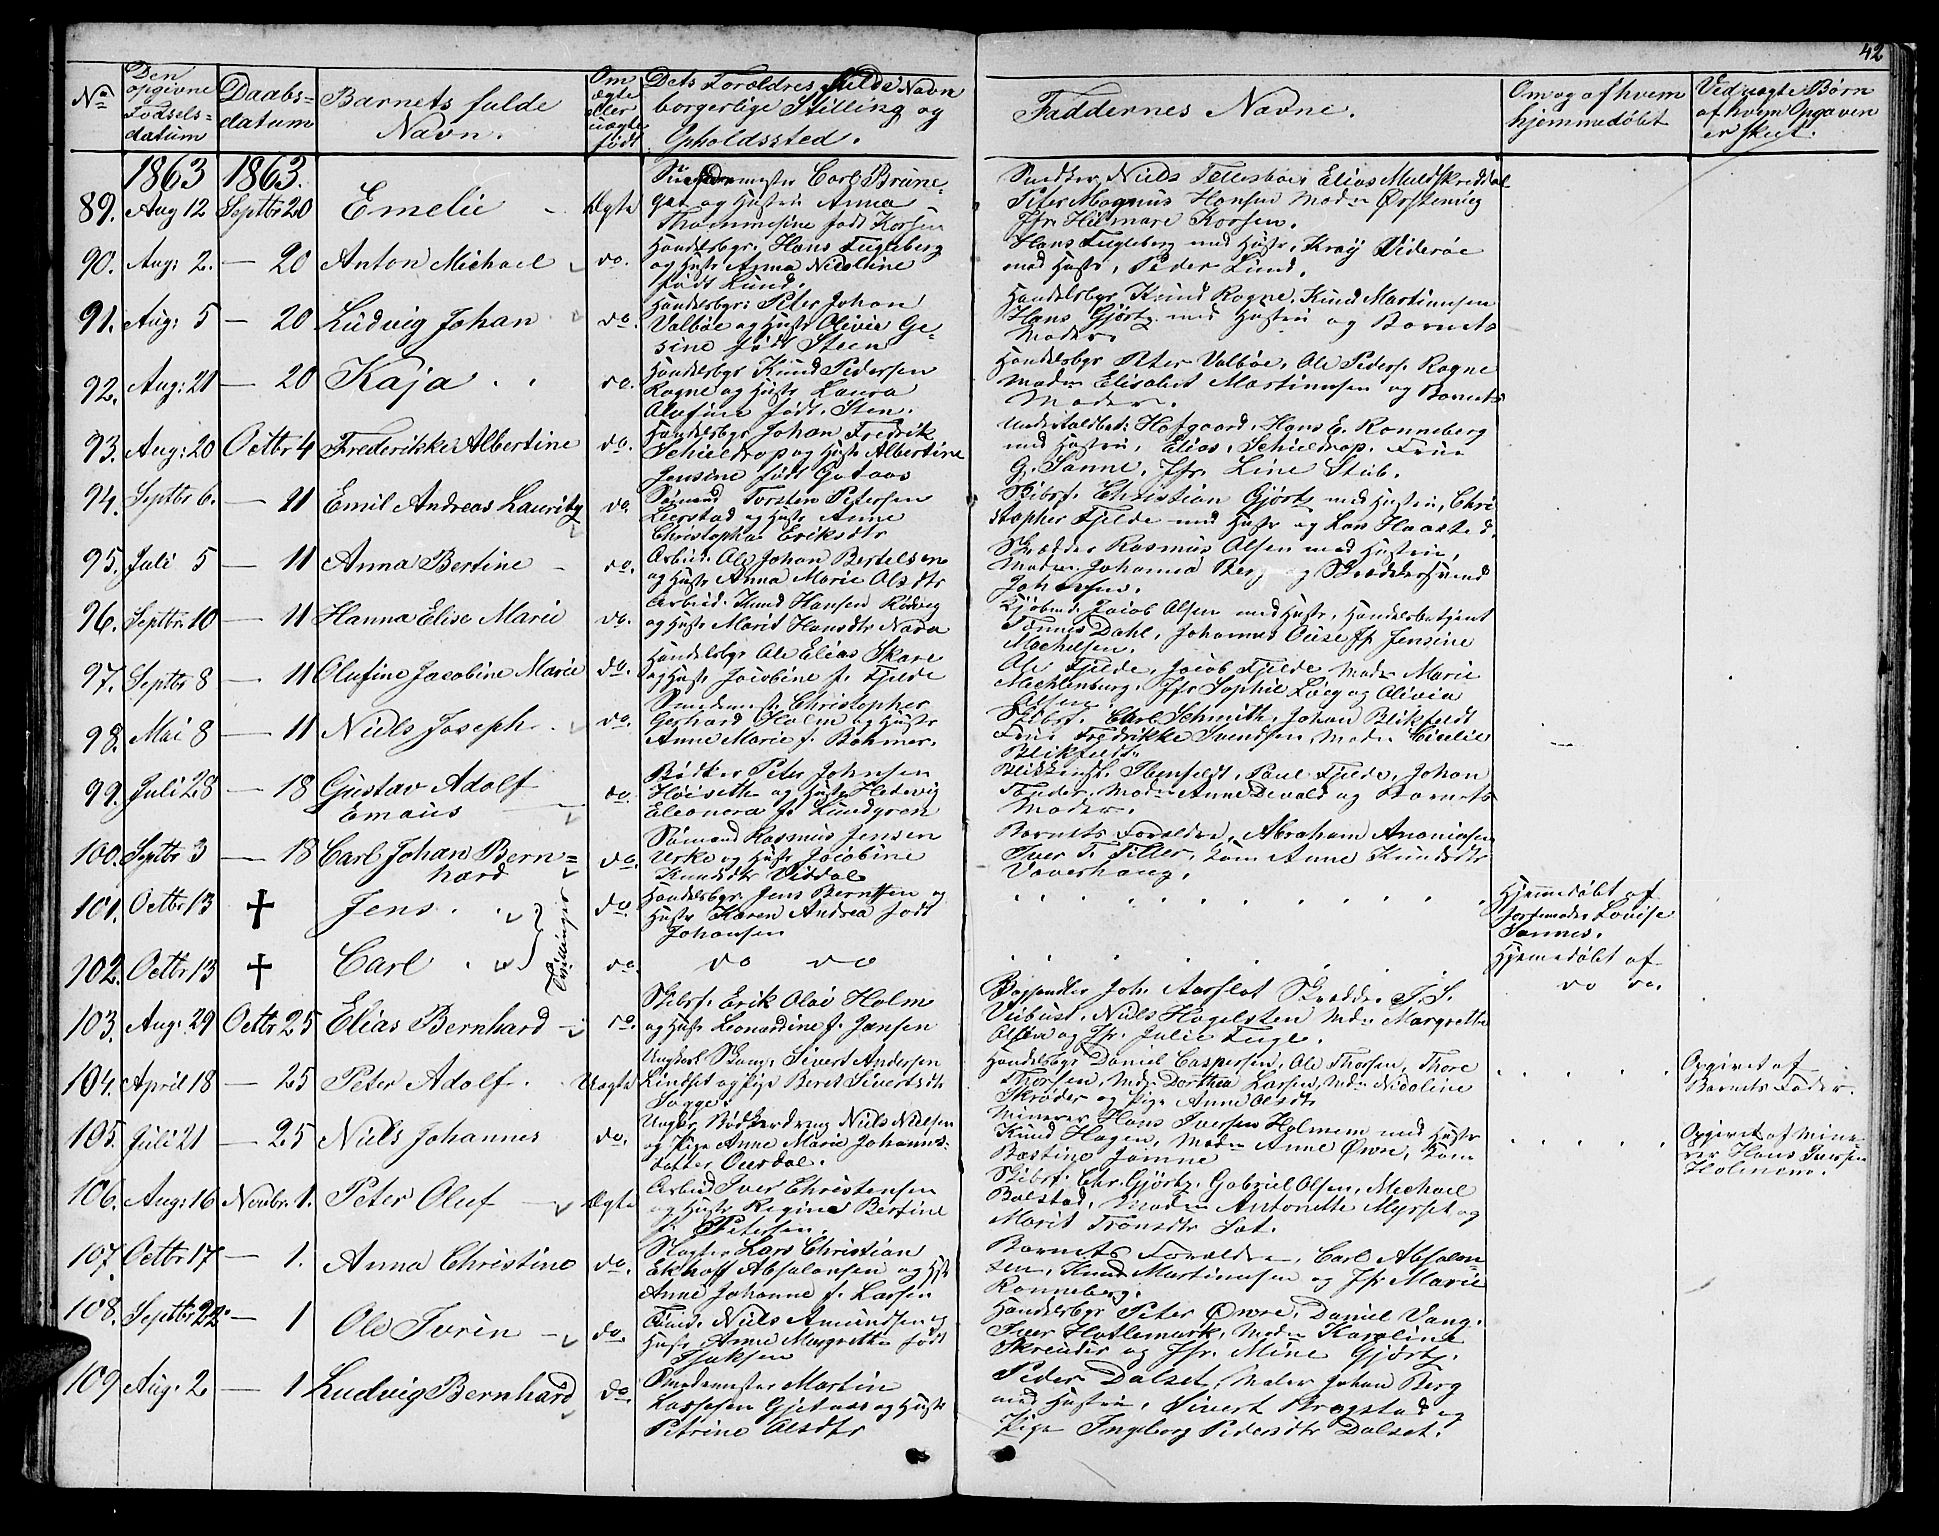 42
No
Den opgivne Fødselsdatum
Daabsdatum
Barnets fulde Navn.
Om ægte eller uægte født
Dets Forældres fulde Navn borgerlige Stilling og Opholdssted.
Faddernes Navne.
Om og af hvem hjemmedøbt
Ved uægte Børn af hvem Opgaven er skeet.
1863 1863.
89. Aug 12 Septbr 20 Emelie Ægte
Carl Brune
og Hustru Anna
Thommesine født Korsen
Peter Magnus Hansen Mad. Ørstenvig
Jfr. Hilmare Korsen.
90. Aug: 2. — 20 Anton Michael do.
Handelsbgr. Hans Fugleberg
og Hustr Anna Nicoline
født Lund.
Hans Fugleberg med Hustr, Kraŋ Viderøe
med Hustr, Peder Lund.
91. Aug: 5 — 20 Ludvig Johan do.
Handelsbgr: Peter Johan
Valbøe og Hustr Olivia Ge-
sine født Steen
Handelsbgr Knud Rogne, Knud Martinusen
Hans Gjørtz med Hustru og Barnets
Moder.
92. Aug: 21 — 20 Kaja do.
Handelsbgr Knud Pedersen
Rogne og Hustr Laura
Olufine født Sten.
Handelsbgr Peter Valbøe, Ole Peders. Rogne
Madm Elisabet Martinusen og Barnets
Moder.
93. Aug: 20 Octbr 4 Frederikke Albertine do.
Handelsbgr Johan Fredrik
Schieldrop og Hustr Albertine
Jensine født Gataas
Hofgaard, Hans E. Ronneberg
med Hustru, Elias Schieldrop, Frue
G. Sanne, Jfr. Line Stub.
94. Septbr 6. — 11 Emil Andreas Lauritz do.
Sømand Torsten Petersen
Leerstad og Hustr Anne
Christopha Eriksdtr
Skibsf. Christian Gjørtz med Hustru, Chri
stopher Fjelde med Hustr og Lars Haasted.
95. Juli 5 — 11 Anna Bertine do.
Arbeid. Ole Johan Bertelsen
og Hustr Anna Marie Olsdtr
Skrædder Rasmus Olsen med Hustru,
Madm Johanna Berg og Skræddersvend
Johansen.
96. Septbr. 10 — 11 Hanna Elise Marie do.
Arbeid. Knud Hansen Rødvig
og Hustr Marit Hansdtr Nara
Kjøbmd. Jacob Olsen med Hustr, Handelsbetjent
Tønnes Dahl, Johannes Ouse Jfr Jensine
Mechelsen.
97. Septbr 8 — 11 Olufine Jacobine Marie do.
Handelsbgr Ole Elias Skare
og Hustr Jacobine f. Fjelde
Ole Fjelde, Jacob Fjelde Madm Marie
Mechlenburg, Jfr Sophie Lieg og Olivia
Olsen.
98. Mai 8 — 11 Niels Joseph do.
Christopher
Gerhard Holm og Hustr
Anne Marie f. Bøhmer.
Skibsf. Carl Schmith, Johan Blikfeldt
Frue Fredrikke Svendsen, Madm Cicilie
Blikfeldt.
99. Juli 28 — 18 Gustav Adolf
Emaus do.
Bødker Peter Johnsen
Høiseth og Hustr Hedevig
Eleonora f. Lundgren
Paul Fjelde, Johan
Madm Anne Devold og Barnets
Moder.
100. Septbr 3 — 18 Carl Johan Bern=
hard do.
Sømand Rasmus Jensen
Urke og Hustr Jacobine
Knudsdtr Viddal
Barnets Forældre, Abraham Ananiasen
Iver T. Tiller, Kom Anne Knudsdtr
Vaverhaug.
101. Octbr 13 † Jens. do.
Tvillinger
Handelsbgr. Jens Berntsen og
Hustr Karen Andrea født
Johansen
Hjemmedøbt af
Jordmoder Louise
Sannes.
102. Octbr 13 † Carl do.
do do
Hjemmedøbt af
do do.
103. Aug: 29 Octbr 25 Elias Bernhard do.
Skibsf. Erik Olai Holm
og Hustr Leonardine f. Jansen
Boghandler Joh. Aarflot Skrædder I. S.
Vebust, Niels Hagelsten Mdm Margrethe
Olsen og Jfr. Julie Fuge.
104. April 18 — 25 Peter Adolf Uægte
Ungkarl Sivert Andersen
Lindset og Pige Beret Sivertsdtr
Sogge.
Handelsbgr Daniel Caspersen, Ole Thorsen, Thore
Thorsen, Mdm Dorthea Larsen, Mdm Nicoline
Skrøder og Pige Anne Olsdtr
Opgivet af
Barnets Fader.
105. Juli 21 — 25 Niels Johannes do.
Ungkr. Bødkerdreng Niels Nielsen
og Pige Anne Marie Johannes-
datter Ouredal.
Minerer Hans Iversen Holmem med Hustr
Knud Hagen, Madm Anne Øvre, Kom
Bastine Jamne
Opgivet af Mine
rer Hans Iversen
Holmem.
106. Aug: 16 Novbr. 1. Peter Oluf Ægte
Arbeid Iver Christensen
og Hustr Regine Bertine
f. Petersen.
Skibsf. Chr. Gjørtz. Gabriel Olsen, Michael
Bolstad, Madm Antonette Myrset og
Marit Tronsdtr Sat.
107. Octbr 17 — 1. Anna Christine do.
Slagter Lars Christian
Ekhoff Absalonsen og Hstr
Anne Johanne f. Larsen
Barnets Forældre, Carl Absalon-
sen, Knud Martinusen og Jfr Marie
Ronneberg.
108. Septbr 22. — 1 Ole Iverin do.
Niels Amundsen og
Hustr Anne Margrethe født
Isaksen
Handelsbgr Peter Øvre, Daniel Vang.
Iver Hatlemark, Madm Karoline
Skreuder og Jfr. Mine Gjørtz.
109 Aug: 2 — 1 Ludvig Bernhard do.
Martin
Lassesen Gjetaas og Hustr
Petrine Olsdtr
Peder Dalset, Maler Johan Berg
med Hustru, Sivert Brogstad og
Pige Ingeborg Pedersdtr Dalset.